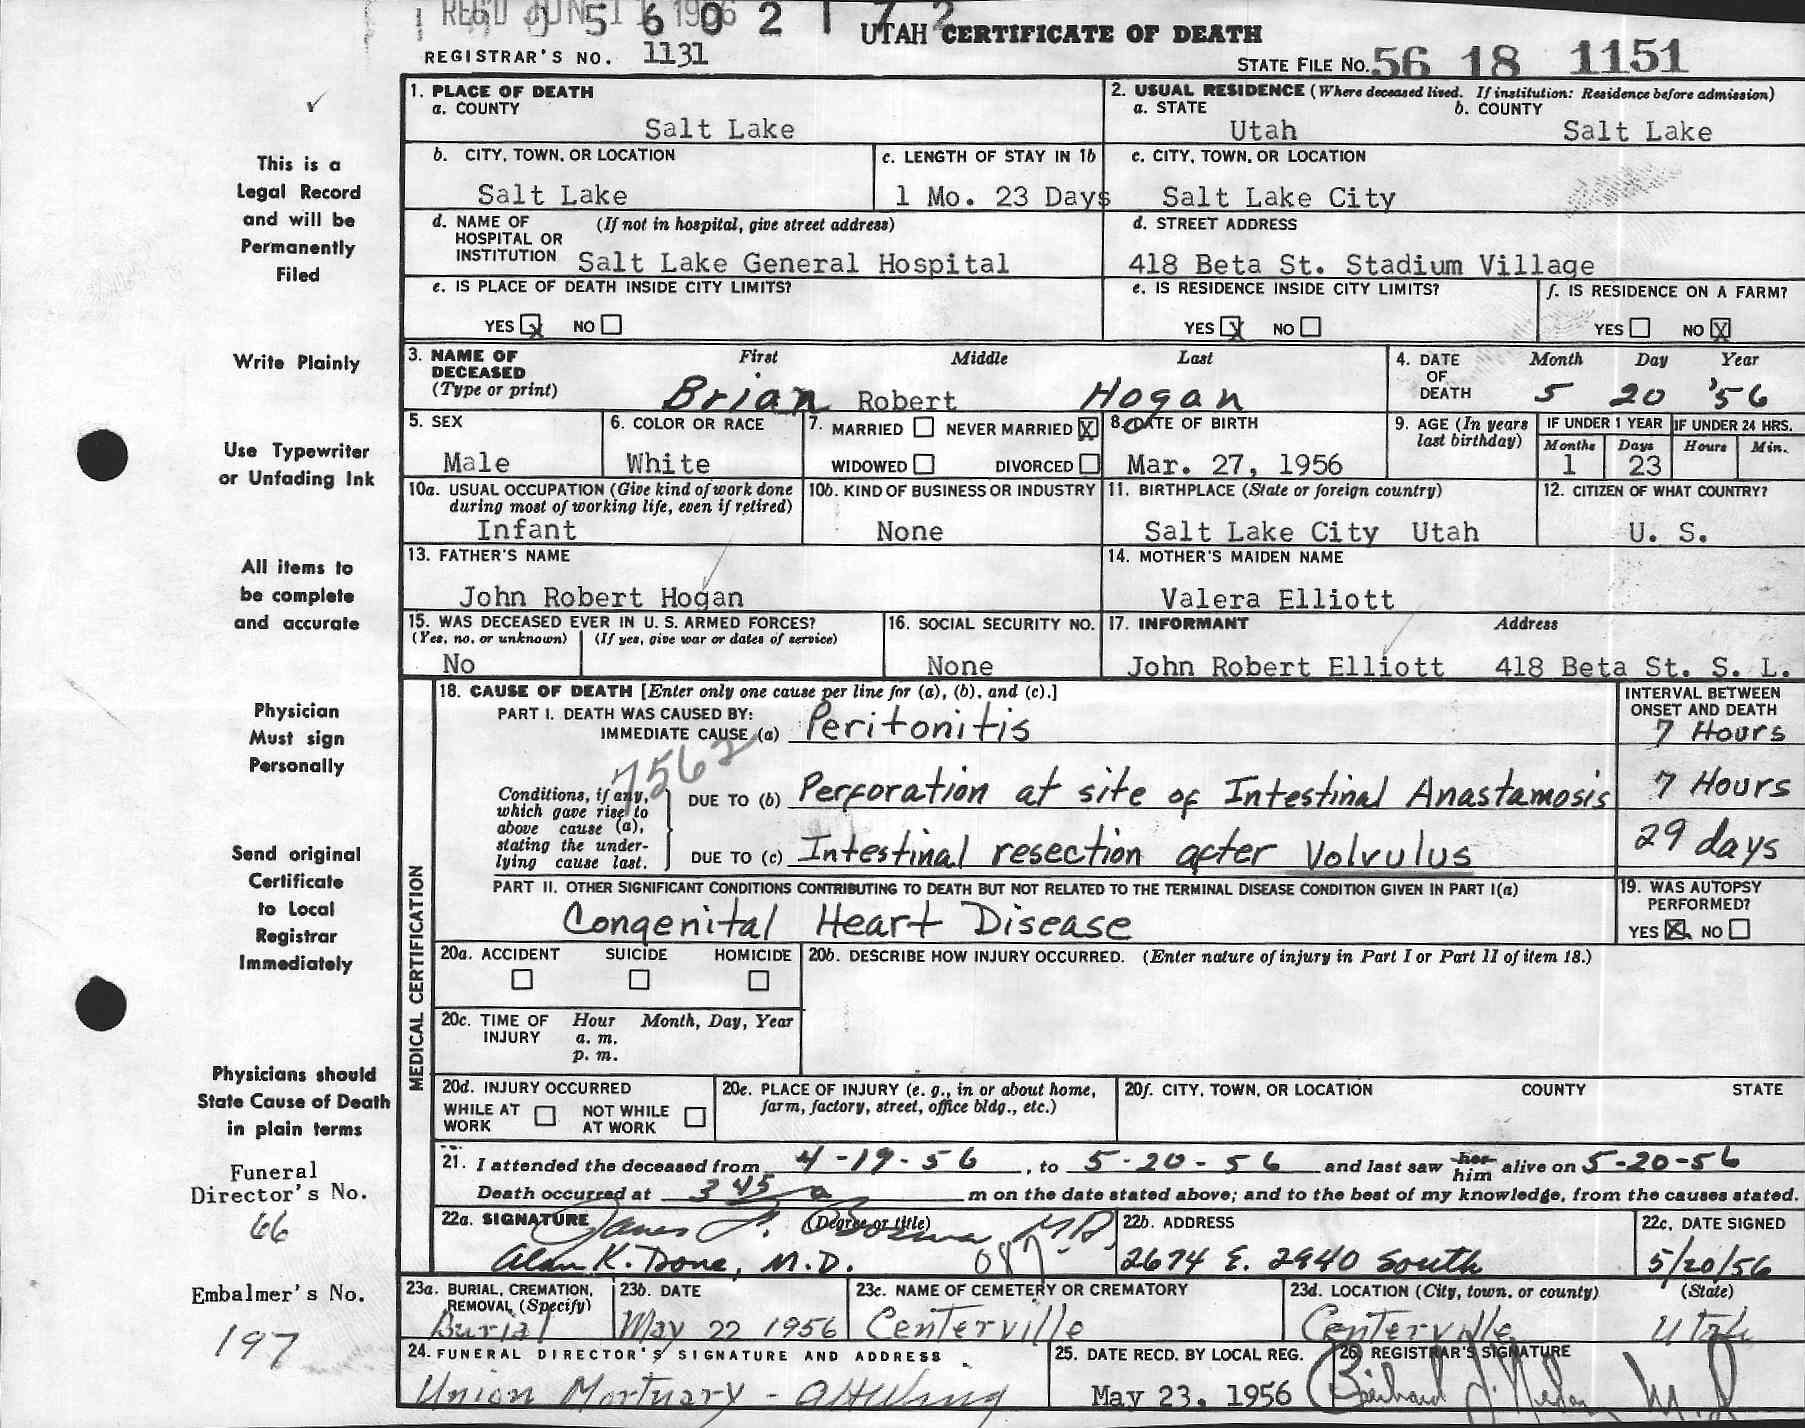 REC'D JUN 1 1956
56 02 172
UTAH CERTIFICATE OF DEATH
REGISTRAR'S NO. 1131
STATE FILE NO. 56 18 1151
1. PLACE OF DEATH
a. COUNTY
Salt Lake
2. USUAL RESIDENCE (Where deceased lived. If institution: Residence before admission)
a. STATE b. COUNTY
Utah Salt Lake
This is a
Legal Record
and will be
Permanently
Filed
b. CITY, TOWN, OR LOCATION
Salt Lake
c. LENGTH OF STAY IN 1b
1 Mo. 23 Days
c. CITY, TOWN, OR LOCATION
Salt Lake City
d. NAME OF (If not in hospital, give street address)
HOSPITAL OR
INSTITUTION Salt Lake General Hospital
d. STREET ADDRESS
418 Beta St. Stadium Village
e. IS PLACE OF DEATH INSIDE CITY LIMITS?
YES X NO
e. IS RESIDENCE INSIDE CITY LIMITS?
YES X NO
f. IS RESIDENCE ON A FARM?
YES NO X
Write Plainly
3. NAME OF First Middle Last
DECEASED
(Type or print) Brian Robert Hogan
4. DATE Month Day Year
OF
DEATH 5 20 '56
Use Typewriter
or Unfading Ink
5. SEX
Male
6. COLOR OR RACE
White
7. MARRIED NEVER MARRIED X
WIDOWED DIVORCED
8. DATE OF BIRTH
Mar. 27, 1956
9. AGE (In years
last birthday)
IF UNDER 1 YEAR IF UNDER 24 HRS.
Months Days Hours Min.
1 23
10a. USUAL OCCUPATION (Give kind of work done
during most of working life, even if retired)
Infant
10b. KIND OF BUSINESS OR INDUSTRY
None
11. BIRTHPLACE (State or foreign country)
Salt Lake City Utah
12. CITIZEN OF WHAT COUNTRY?
U. S.
All items to
be complete
and accurate
13. FATHER'S NAME
John Robert Hogan
14. MOTHER'S MAIDEN NAME
Valera Elliott
15. WAS DECEASED EVER IN U. S. ARMED FORCES?
(Yes, no, or unknown) (If yes, give war or dates of service)
No
16. SOCIAL SECURITY NO.
None
17. INFORMANT Address
John Robert Elliott 418 Beta St. S. L.
Physician
Must sign
Personally
MEDICAL CERTIFICATION
18. CAUSE OF DEATH [Enter only one cause per line for (a), (b), and (c).]
INTERVAL BETWEEN
ONSET AND DEATH
PART I. DEATH WAS CAUSED BY:
IMMEDIATE CAUSE (a) Peritonitis 7 Hours
7562
Conditions, if any,
which gave rise to
above cause (a),
stating the under-
lying cause last.
DUE TO (b) Perforation at site of Intestinal Anastamosis 7 Hours
DUE TO (c) Intestinal resection after Volvulus 29 days
Send original
Certificate
to Local
Registrar
Immediately
PART II. OTHER SIGNIFICANT CONDITIONS CONTRIBUTING TO DEATH BUT NOT RELATED TO THE TERMINAL DISEASE CONDITION GIVEN IN PART I(a)
Congenital Heart Disease
19. WAS AUTOPSY
PERFORMED?
YES X NO
20a. ACCIDENT SUICIDE HOMICIDE
20b. DESCRIBE HOW INJURY OCCURRED. (Enter nature of injury in Part I or Part II of item 18.)
20c. TIME OF Hour Month, Day, Year
INJURY a. m.
p. m.
Physicians should
State Cause of Death
in plain terms
20d. INJURY OCCURRED
WHILE AT NOT WHILE
WORK AT WORK
20e. PLACE OF INJURY (e. g., in or about home,
farm, factory, street, office bldg., etc.)
20f. CITY, TOWN, OR LOCATION COUNTY STATE
21. I attended the deceased from 4-19-56, to 5-20-56 and last saw her him alive on 5-20-56
Death occurred at 3 45 a m on the date stated above; and to the best of my knowledge, from the causes stated.
Funeral
Director's No.
66
22a. SIGNATURE (Degree or title)
James F. M.D.
Alan K. Done, M.D. 087
22b. ADDRESS
2674 E. 2940 South
22c. DATE SIGNED
5/20/56
Embalmer's No.
197
23a. BURIAL, CREMATION,
REMOVAL (Specify)
Burial
23b. DATE
May 22 1956
23c. NAME OF CEMETERY OR CREMATORY
Centerville
23d. LOCATION (City, town, or county) (State)
Centerville Utah
24. FUNERAL DIRECTOR'S SIGNATURE AND ADDRESS
Union Mortuary -
25. DATE RECD. BY LOCAL REG.
May 23, 1956
26. REGISTRAR'S SIGNATURE
M.D.